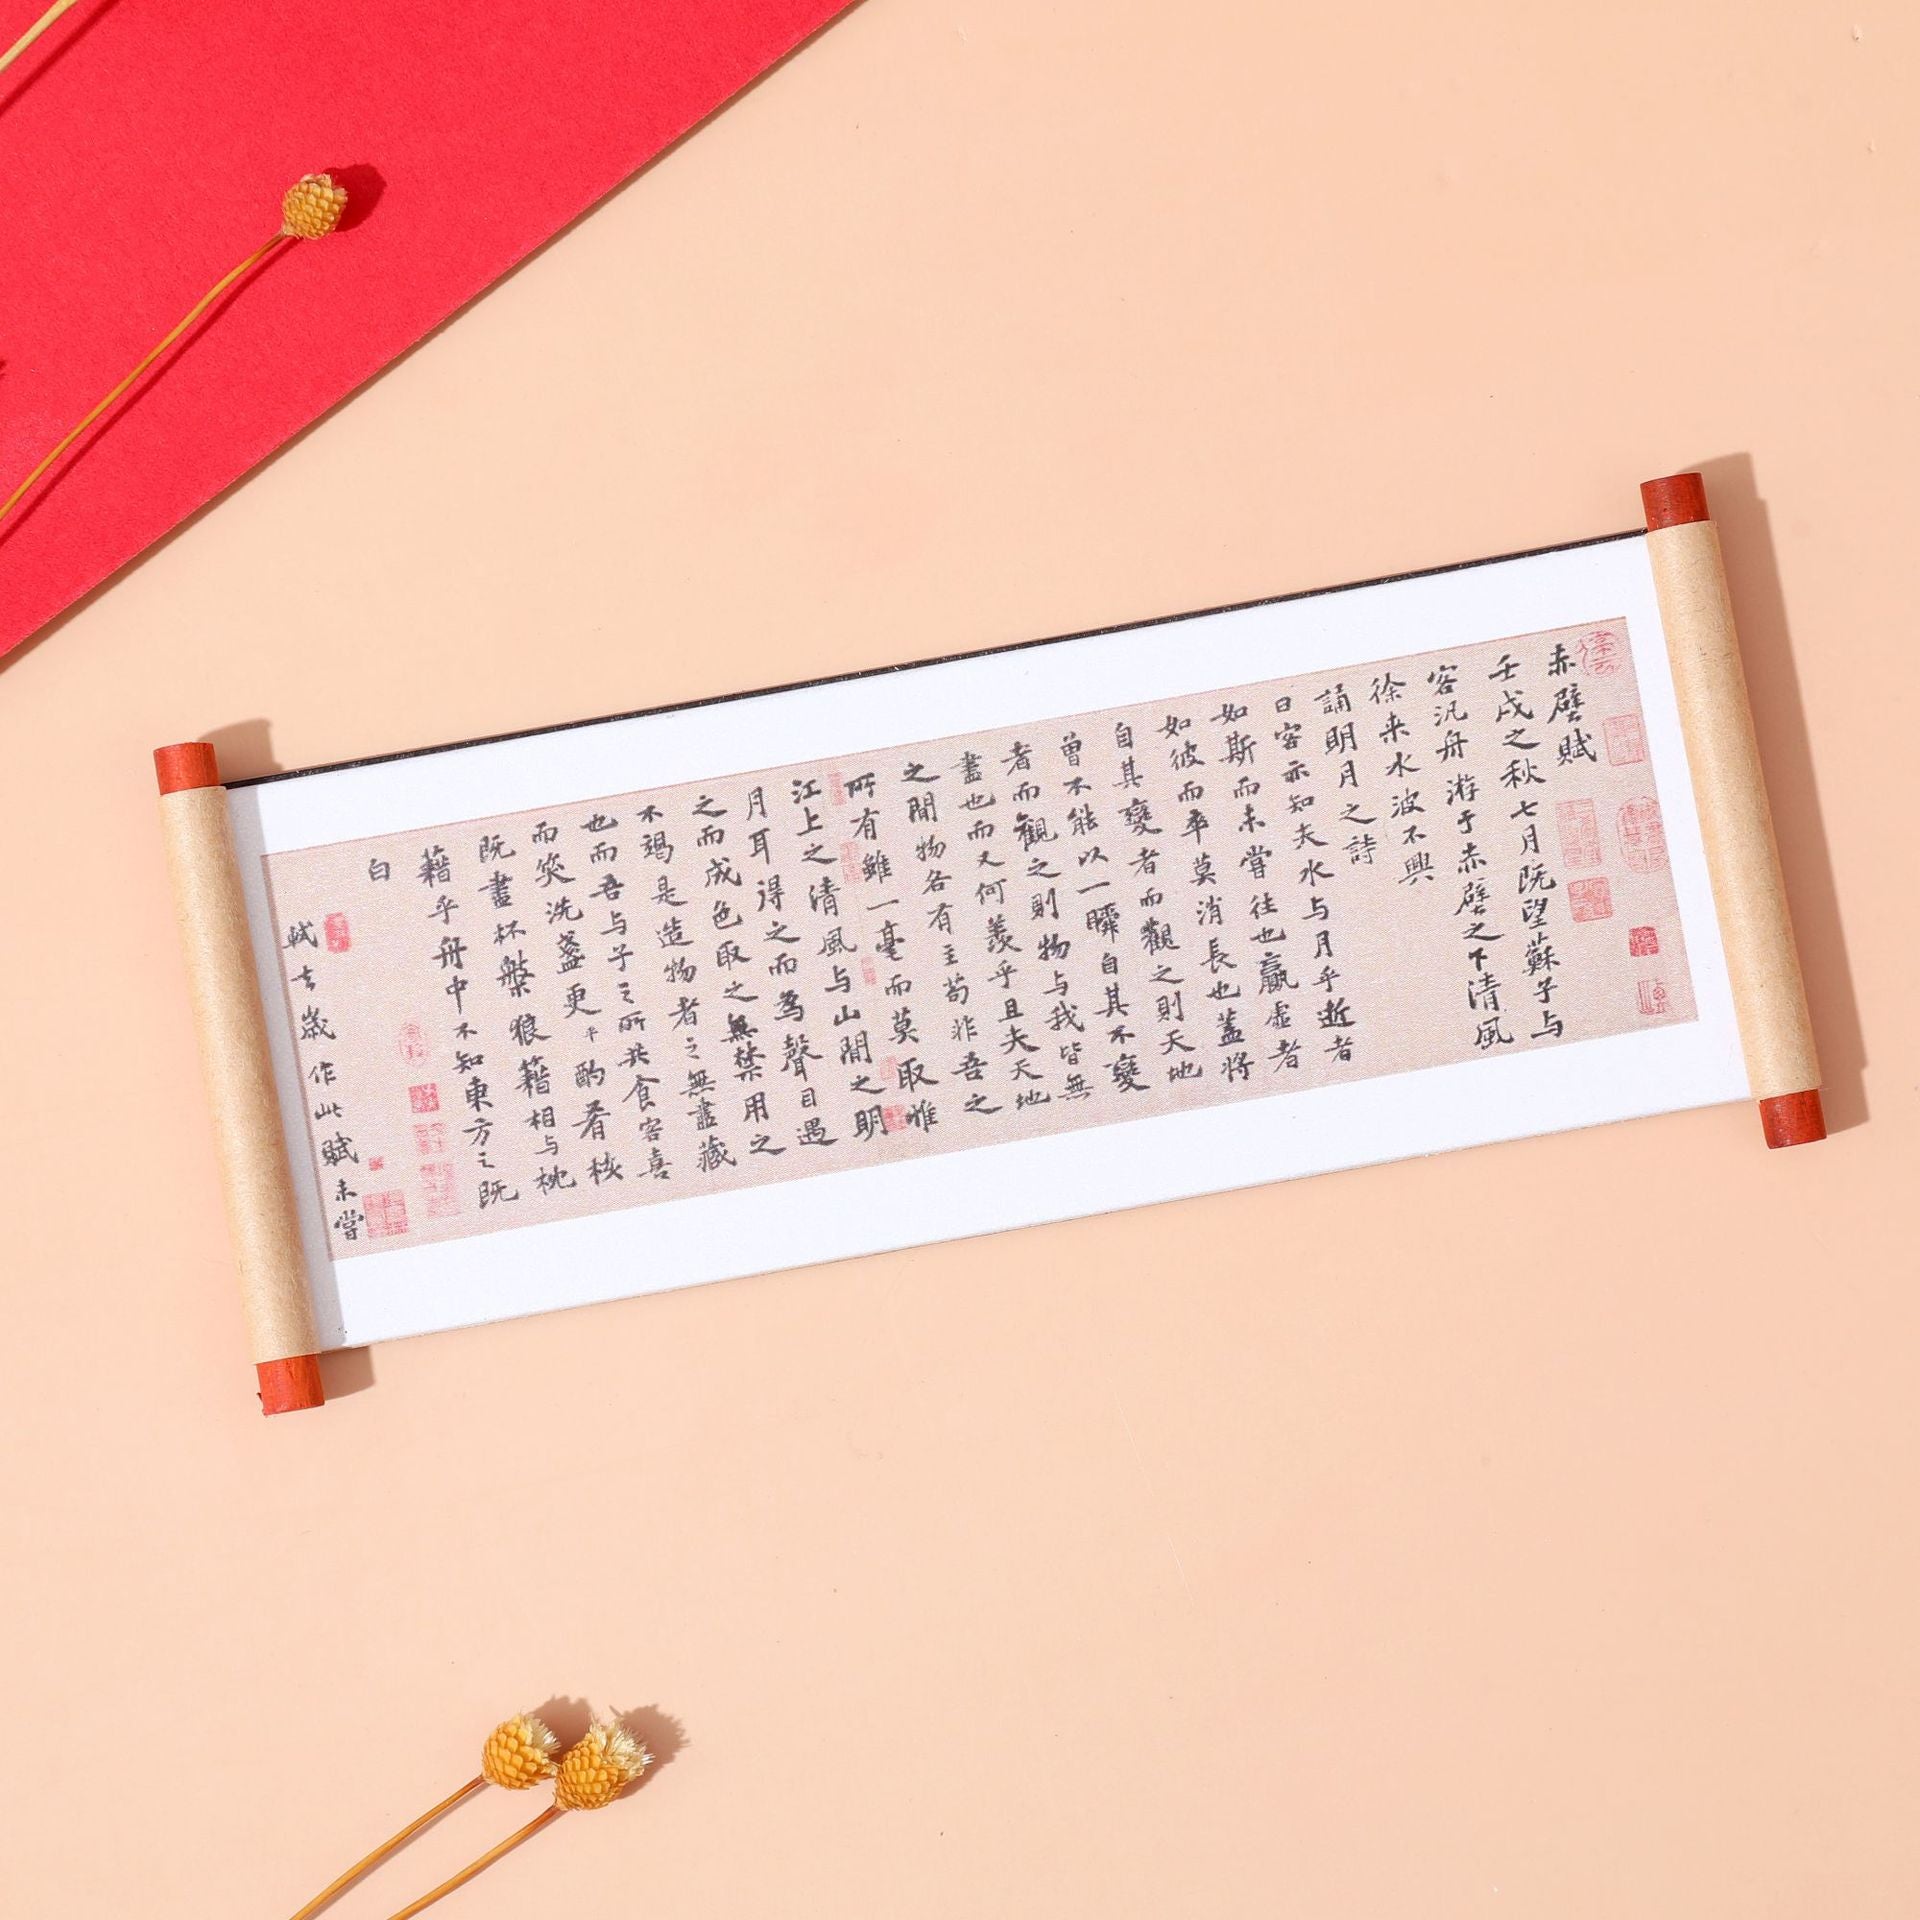 赤壁賦
壬戌之秋七月既望蘇子与
客汎舟游于赤壁之下清風
徐来水波不興
誦明月之詩
曰客亦知夫水与月乎逝者
如斯而未嘗往也贏虛者
如彼而卒莫消長也蓋將
自其變者而觀之則天地
曾不能以一瞬自其不變
者而觀之則物与我皆無
盡也而又何羨乎且夫天地
之間物各有主苟非吾之
所有雖一毫而莫取惟
江上之清風与山間之明
月耳得之而為聲目遇
之而成色取之無禁用之
不竭是造物者之無盡藏
也而吾与子之所共食客喜
而笑洗盞更酌肴核
既盡杯盤狼籍相与枕
籍乎舟中不知東方之既
白
軾去歲作此賦未嘗